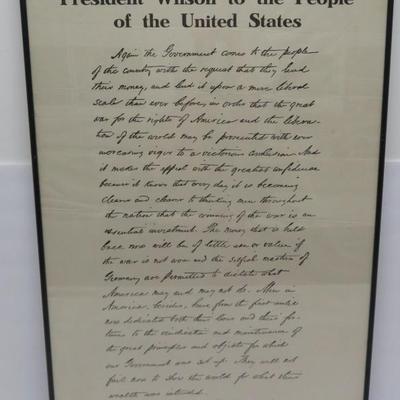 President Wilson to the People
of the United States
Again the Government comes to the people
of the country with the request that they lend
their money, and lend it upon a more liberal
scale than ever before, in order that the great
war for the rights of America and the libera-
tion of the world may be prosecuted with ever
increasing vigor to a victorious conclusion. And
it makes the appeal with the greatest confidence
because it knows that every day it is becoming
clearer and clearer to thinking men throughout
the nation that the winning of the war is an
essential investment. The money that is held
back now will be of little use or value if
the war is not won and the selfish masters of
Germany are permitted to dictate what
America may and may not do. Men in
America, besides, have from the first until
now dedicated both their lives and their for-
tunes to the vindication and maintenance of
the great principles and objects for which
our Government was set up. They will not
fail now to show the world for what their
wealth was intended.